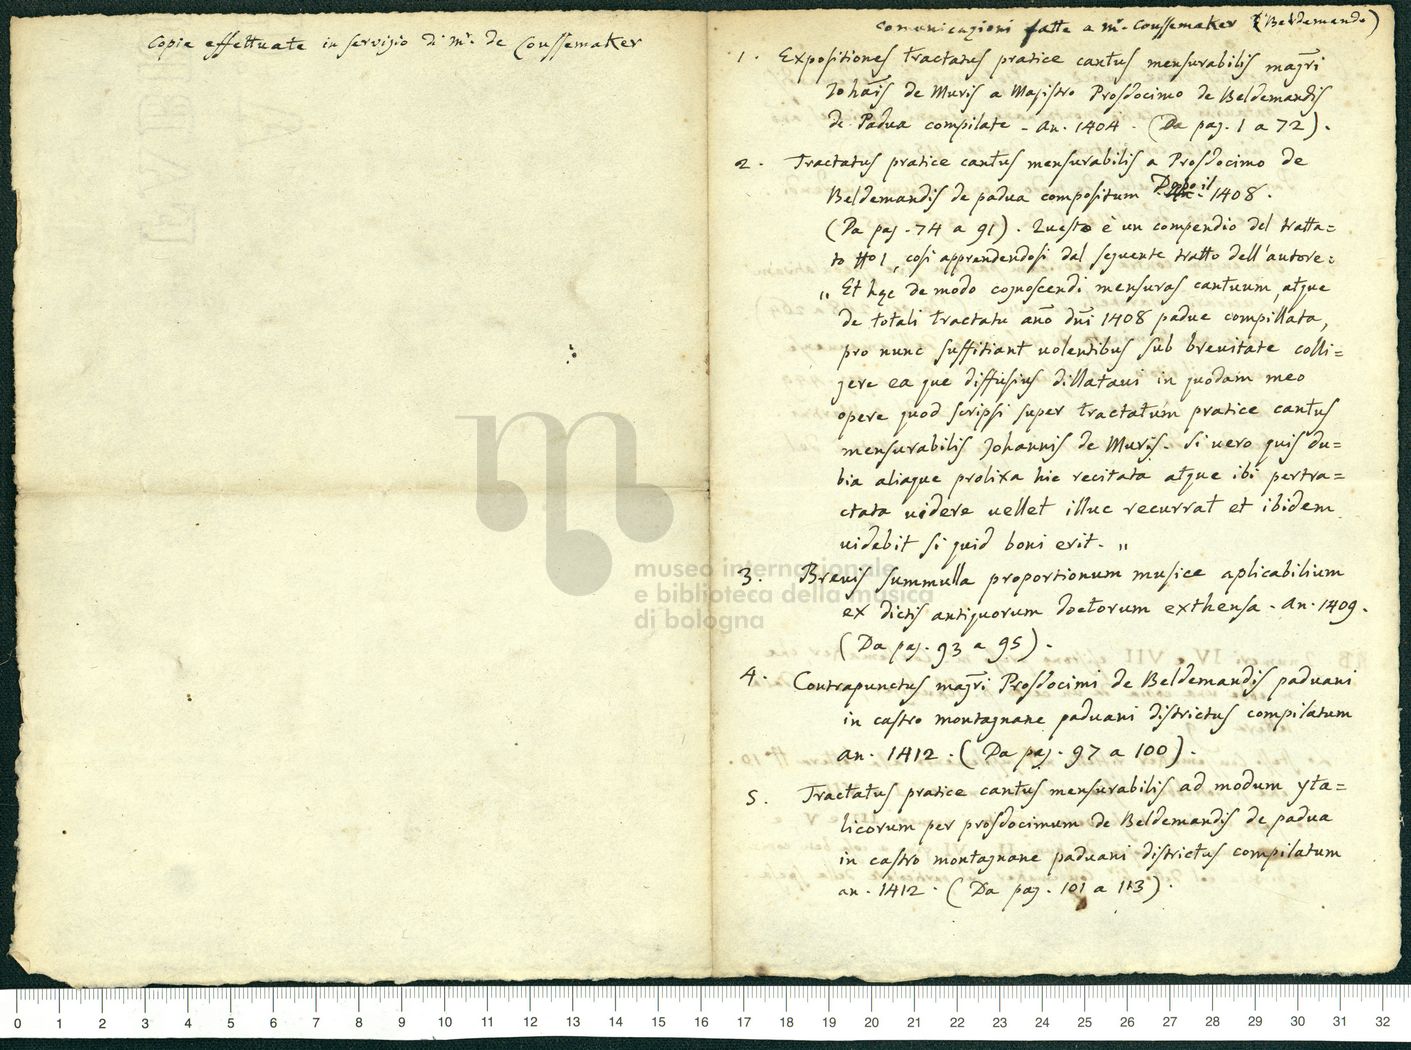 Copie effettuate in servizio di Mr. de Coussemaker
Comunicazioni fatte a Mr. Coussemaker (Beldemando)
1. Expositiones tractatus pratice cantus mensurabilis magri
Johais de Muris a Magistro Prosdocimo de Beldemandis
de Padua compilate - an. 1404. (Da pag. 1 a 72).
2. Tractatus pratice cantus mensurabilis a Prosdocimo de
Beldemandis de padua compositum Dopo il 1408.
(Da pag. 74 a 91). Questo è un compendio del tratta=
to No 1, così apprendendosi dal seguente tratto dell'autore:
„ Et hęc de modo cognoscendi mensuras cantuum, atque
de totali tractatu ano dni 1408 padue compillata,
pro nunc suffitiant uolentibus sub breuitate colli=
gere ea que diffusius dillataui in quodam meo
opere quod scripsi super tractatum pratice cantus
mensurabilis Johannis de Muris. Si uero quis du=
bia aliaque prolixa hic recitata atque ibi pertra=
ctata uidere uellet illuc recurrat et ibidem
uidebit si quid boni erit. „
3. Breuis summulla proportionum musice aplicabilium
ex dictis antiquorum doctorum exthensa - an. 1409.
(Da pag. 93 a 95).
4. Contrapunctus magri Prosdocimi de Beldemandis paduani
in castro montagnane paduani districtus compilatum
an. 1412. (Da pag. 97 a 100).
5. Tractatus pratice cantus mensurabilis ad modum yta=
licorum per prosdocimum de Beldemandis de padua
in castro montagnane paduani districtus compilatum
an. 1412. (Da pag. 101 a 113).
museo internazionale
e biblioteca della musica
di bologna
0 1 2 3 4 5 6 7 8 9 10 11 12 13 14 15 16 17 18 19 20 21 22 23 24 25 26 27 28 29 30 31 32